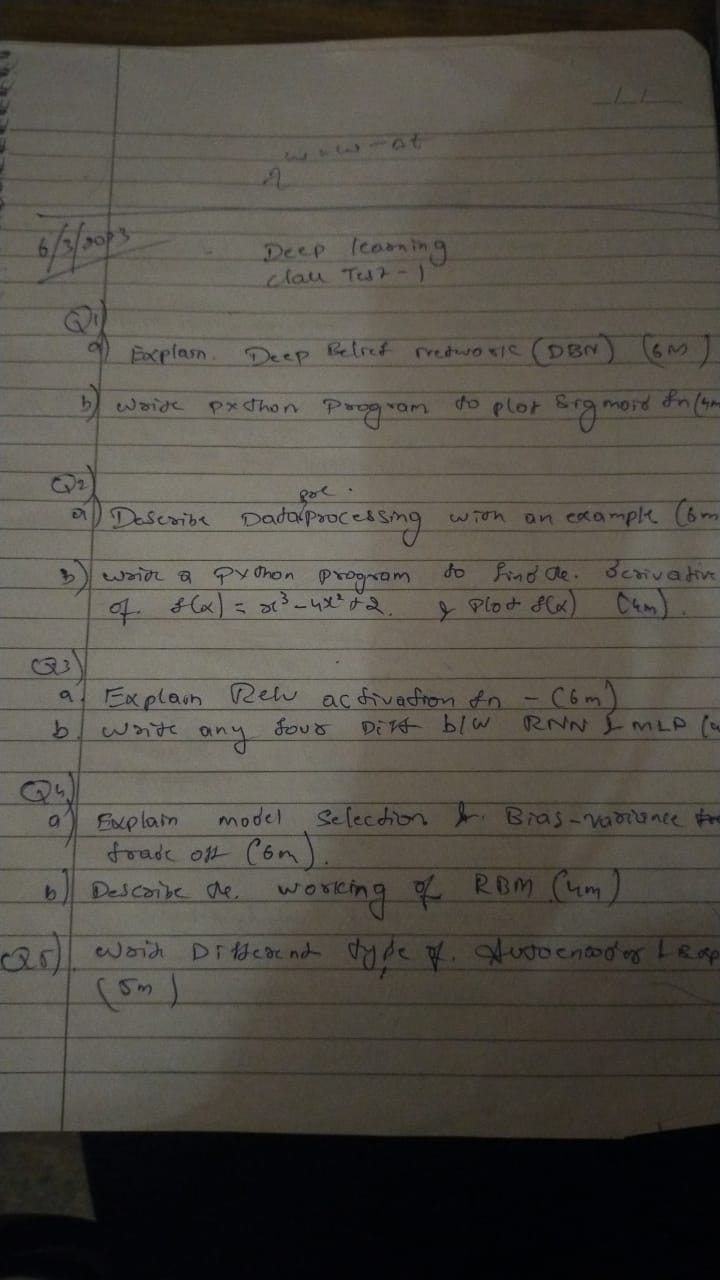 6/3/2023
Deep learning
Class Test-1
Q1)
a) Explain. Deep Belief Network (DBN) (6M)
b) write python program to plot Sigmoid fn (4m
Q2)
pre.
a) Describe Data processing with an example (6m
b) write a python program to find the. derivative
of. f(x) = x³-4x²+2. & plot f(x) (4m).
Q3)
a) Explain Relu activation fn - (6m)
b. write any four Diff b/w RNN & MLP (4
Q4)
a) Explain model Selection &. Bias-variance
trade off (6m).
b) Describe the. working of RBM (4m)
Q5). Writ Different type of. Autoencoder & Exp
(5m)